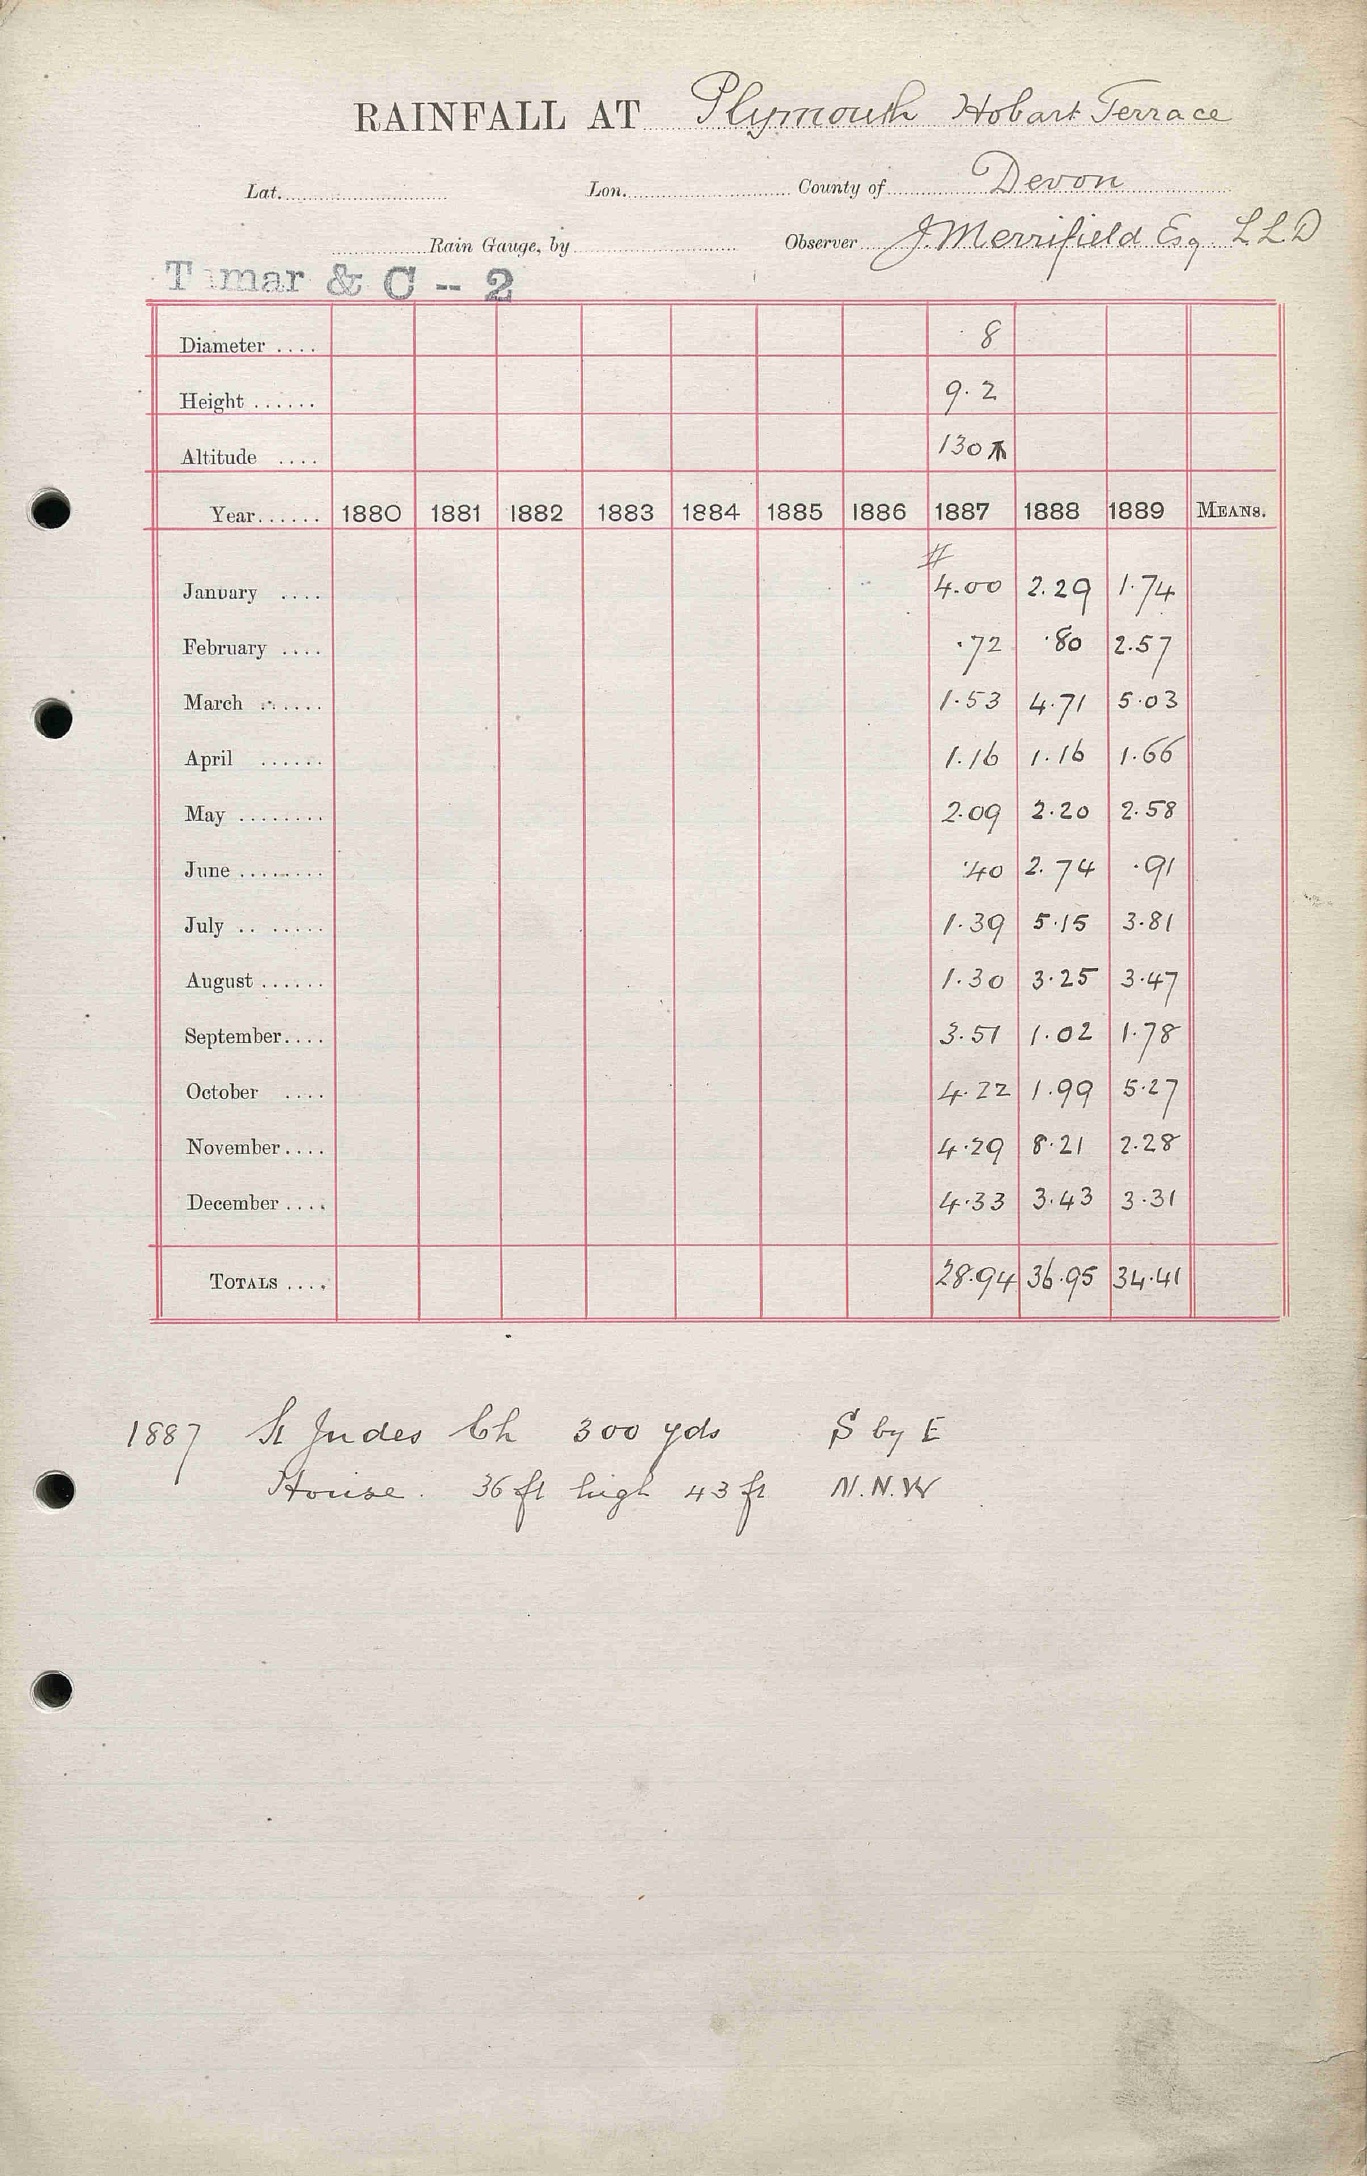 RAINFALL AT Plymouth Hobart Terrace
Lat. Lon. County of Devon
Rain Gauge, by Observer J. Merrifield Esq LLD
Tamar & C -- 2
Diameter .... 8
Height ...... 9.2
Altitude .... 130
Year...... 1880 1881 1882 1883 1884 1885 1886 1887 1888 1889 MEANS.
#
January .... 4.00 2.29 1.74
February .... .72 .80 2.57
March ...... 1.53 4.71 5.03
April ...... 1.16 1.16 1.66
May ........ 2.09 2.20 2.58
June ........ .40 2.74 .91
July .. ..... 1.39 5.15 3.81
August ...... 1.30 3.25 3.47
September.... 3.51 1.02 1.78
October .... 4.22 1.99 5.27
November.... 4.29 8.21 2.28
December .... 4.33 3.43 3.31
TOTALS .... 28.94 36.95 34.41
1887 St Judes Ch 300 yds S by E
House. 36 ft high 43 ft N.N.W